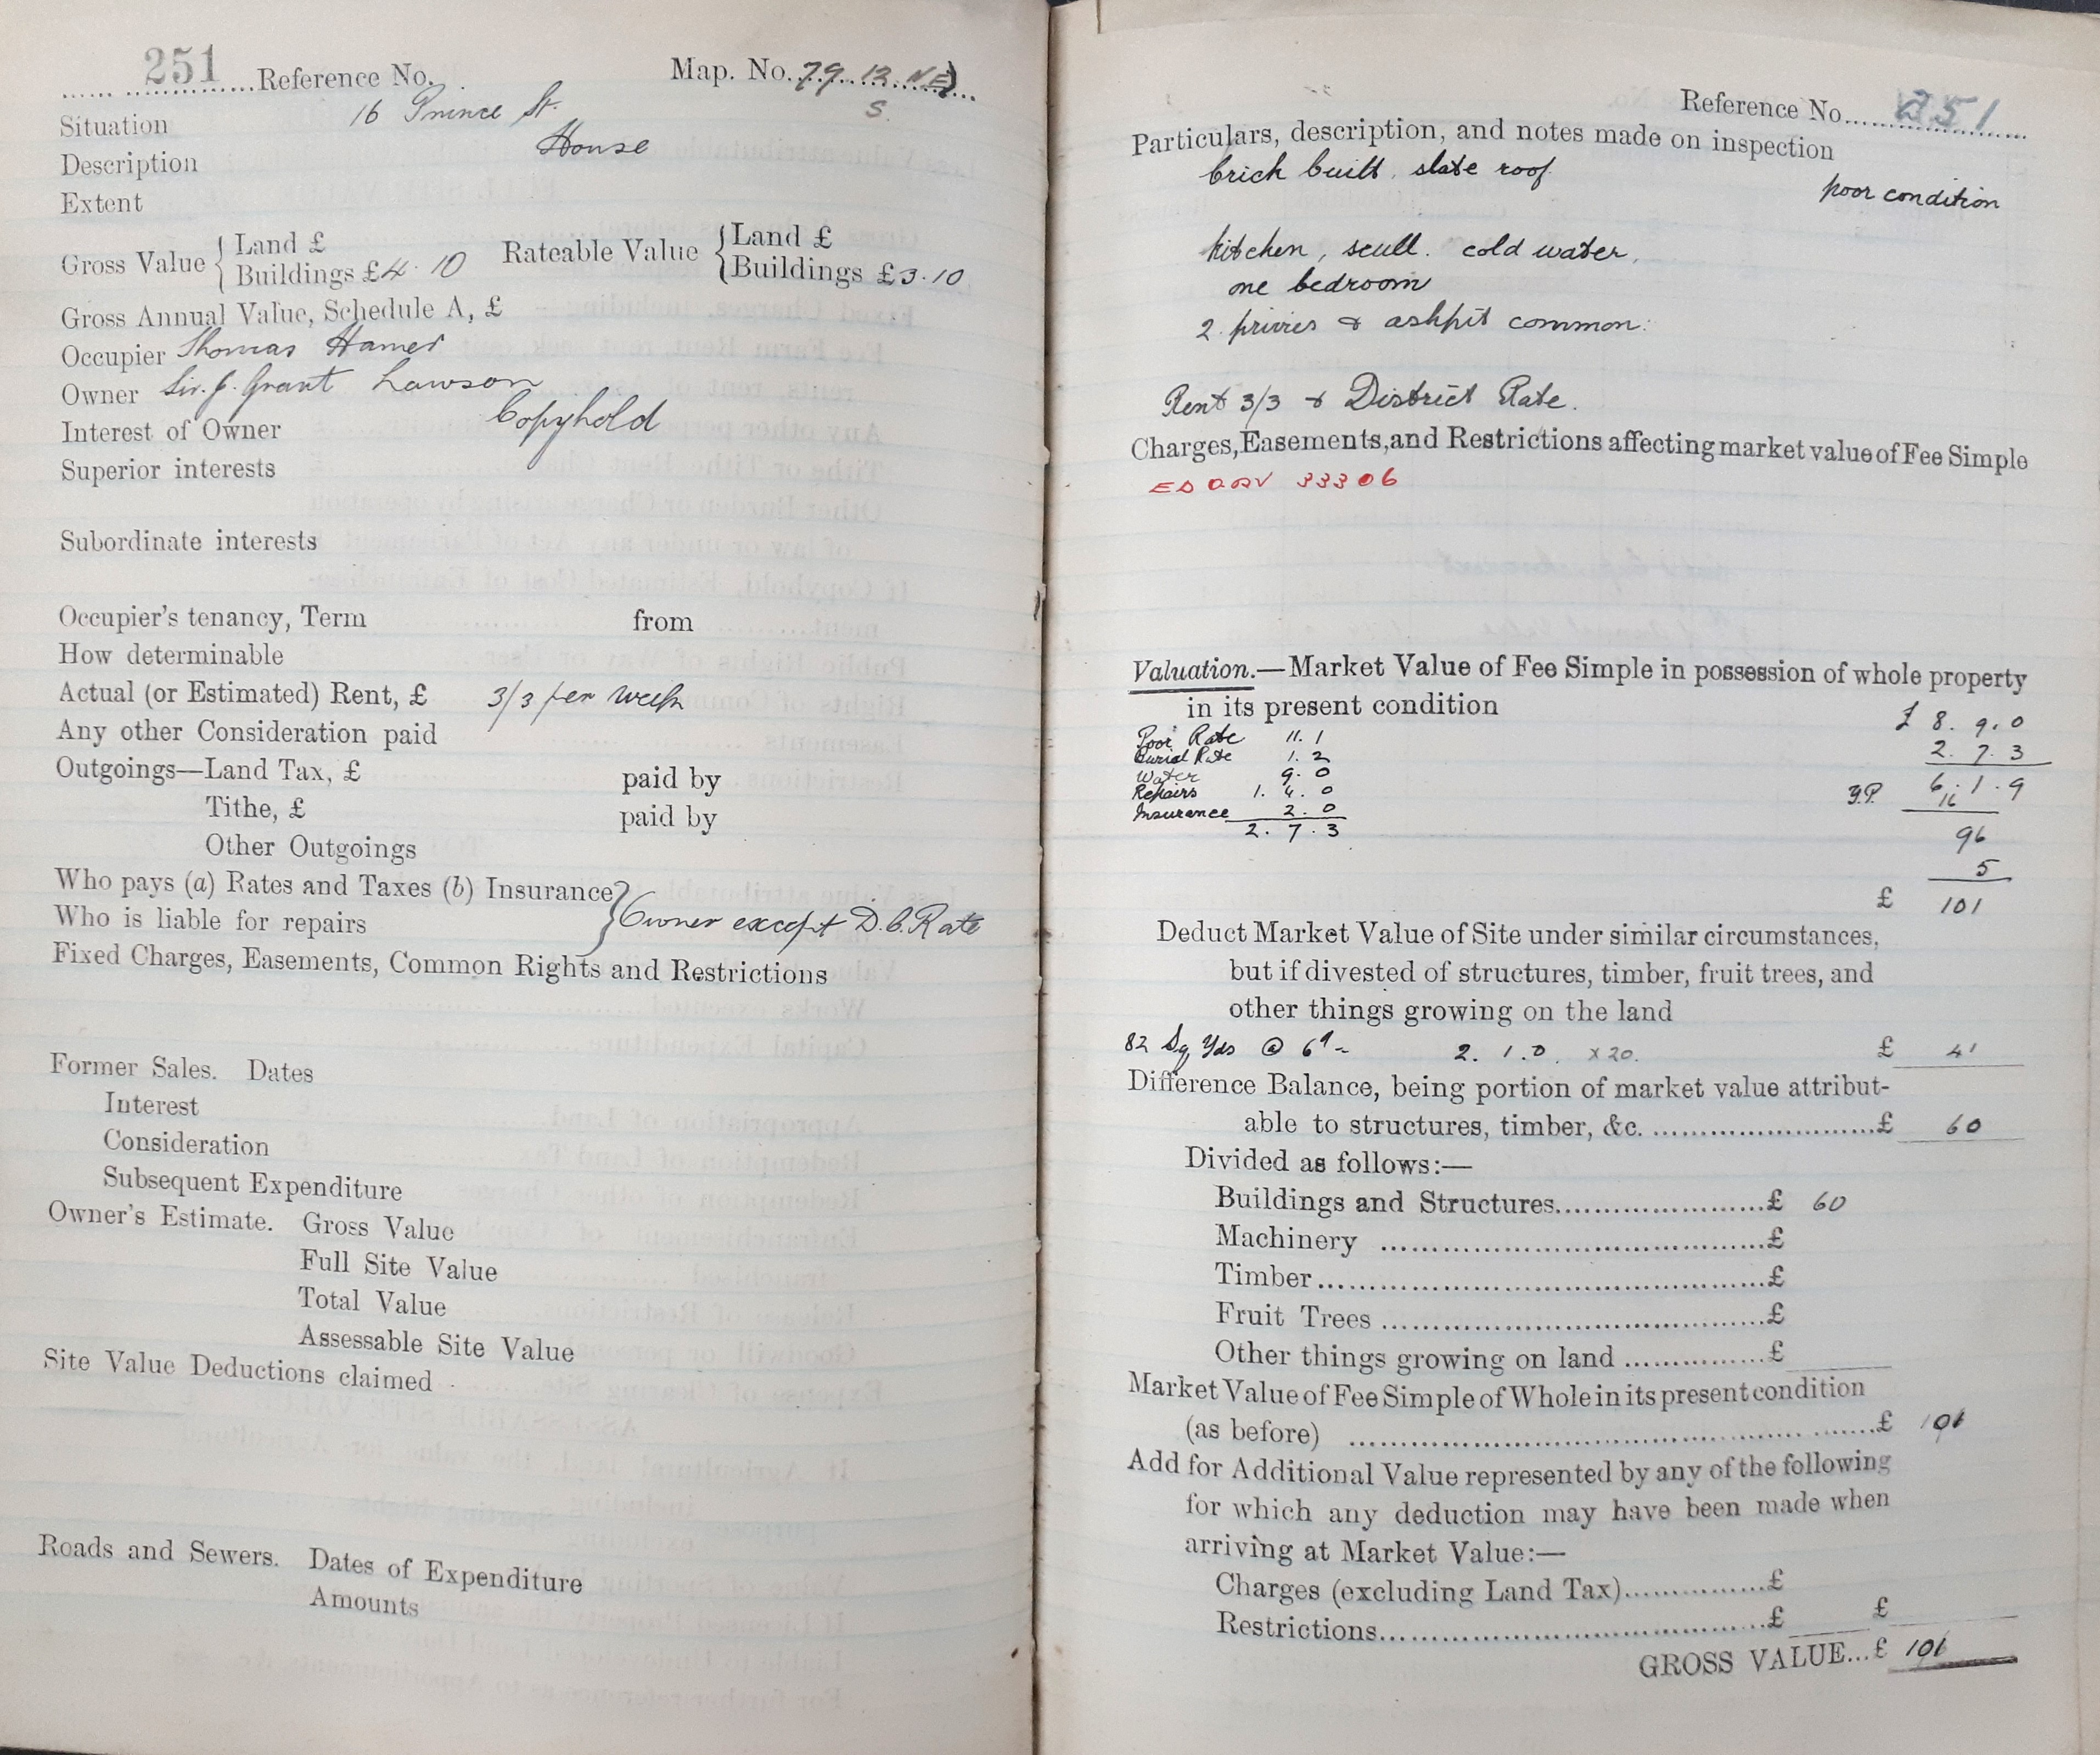 251 Reference No. Map. No. 79. 12. NE)
S.
Situation 16 Prince St.
Description House
Extent
Gross Value { Land £ Rateable Value { Land £
Buildings £4. 10 Buildings £3.10
Gross Annual Value, Schedule A, £
Occupier Thomas Hamer
Owner Sir. J. Grant Lawson
Interest of Owner Copyhold
Superior interests
Subordinate interests
Occupier's tenancy, Term from
How determinable
Actual (or Estimated) Rent, £ 3/3 per week
Any other Consideration paid
Outgoings—Land Tax, £ paid by
Tithe, £ paid by
Other Outgoings
Who pays (a) Rates and Taxes (b) Insurance }
Who is liable for repairs } Owner except D.C. Rate
Fixed Charges, Easements, Common Rights and Restrictions
Former Sales. Dates
Interest
Consideration
Subsequent Expenditure
Owner's Estimate. Gross Value
Full Site Value
Total Value
Assessable Site Value
Site Value Deductions claimed
Roads and Sewers. Dates of Expenditure
Amounts
Reference No. 251
Particulars, description, and notes made on inspection
brick built, slate roof.
poor condition
kitchen, scull. cold water,
one bedroom
2. privies & ashpit common.
Rent 3/3 & District Rate.
Charges, Easements, and Restrictions affecting market value of Fee Simple
33306
Valuation.—Market Value of Fee Simple in possession of whole property
in its present condition £ 8. 9. 0
Poor Rate 11. 1
Burial Rate 1. 2 2. 7. 3
Water 9. 0
Repairs 1. 4. 0 Y.P. 6. 1. 9
Insurance 2. 0 16
2. 7. 3 96
5
£ 101
Deduct Market Value of Site under similar circumstances,
but if divested of structures, timber, fruit trees, and
other things growing on the land
82 Sq Yds @ 6d 2. 1. 0. x 20. £ 41
Difference Balance, being portion of market value attribut-
able to structures, timber, &c. £ 60
Divided as follows:—
Buildings and Structures £ 60
Machinery £
Timber £
Fruit Trees £
Other things growing on land £
Market Value of Fee Simple of Whole in its present condition
(as before) £ 101
Add for Additional Value represented by any of the following
for which any deduction may have been made when
arriving at Market Value:—
Charges (excluding Land Tax) £
Restrictions £ £
GROSS VALUE... £ 101